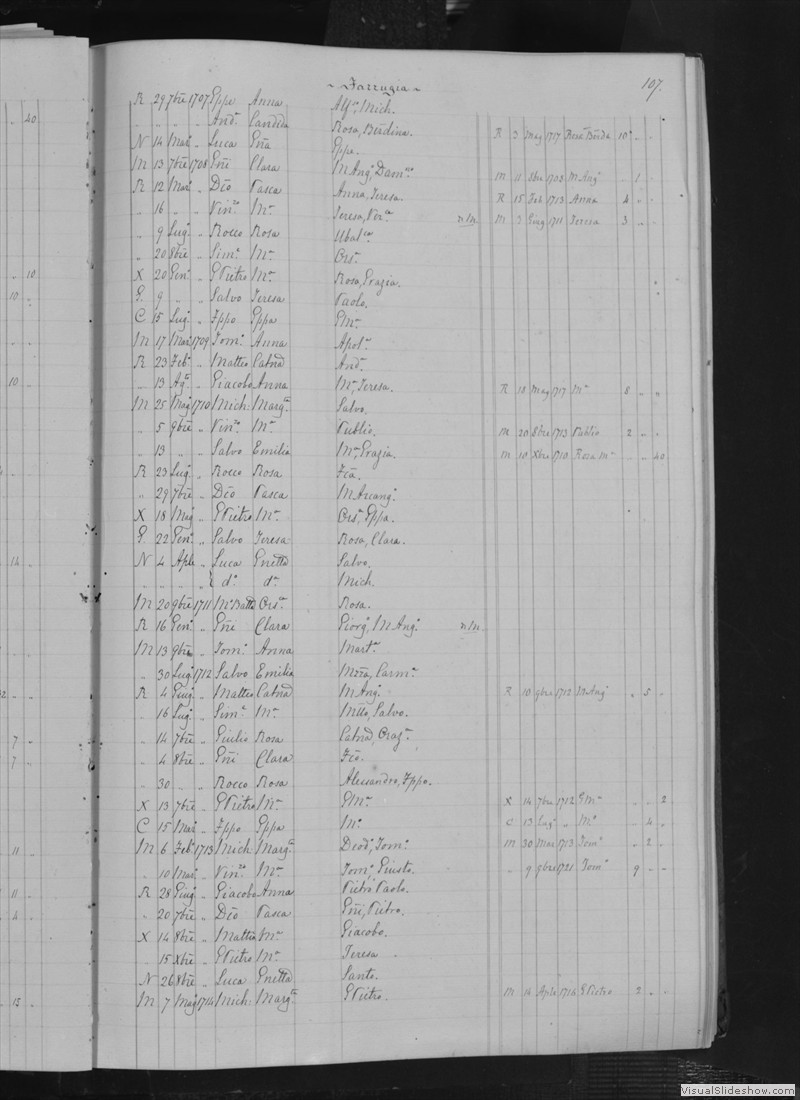 107.
Farrugia
R 29 7bre 1707 Eppe Anna Alfa, Mich.
40 " " " " Anda Candida Rosa, Berdina. R 3 Mag 1717 Rosa Borda 10 " "
N 14 Mar " Luca Eña Eppe.
M 13 7bre 1708 Eñi Clara M Anga Damno M 11 8bre 1708 M Anga " 1 "
R 12 Mar " Dco Pasca Anna, Teresa. R 15 Feb 1713 Anna 4 " "
" 16 " " Vinzo Ma Teresa, Vinca n/n M 3 Giug 1711 Teresa 3 " "
" 9 Lug " Rocco Rosa Ubalca
" 20 8bre " Sime Ma Orsa
" 10 X 20 Gen " GPietro Ma Rosa, Grazia.
10 " G. 9 " " Salvo Teresa Paolo.
C 15 Lug " Fppo Eppa GMa
M 17 Mar 1709 Toma Anna Apola
R 23 Feb " Matteo Catnd Anda
10 " 13 Aga " Giacobo Anna Ma, Teresa. R 18 Mag 1717 Ma 8 " "
M 25 Mag 1710 Mich: Marga Salvo.
" 5 9bre " Vinzo Ma Publio. M 20 8bre 1713 Publio 2 " "
" 13 " " Salvo Emilia Ma, Grazia. M 10 Xbre 1710 Rosa Ma " " 40
R 23 Lug " Rocco Rosa Fca
" 29 7bre " Dco Pasca M Arcanga
X 18 Mag " GPietro Ma Orsa, Eppa.
G. 22 Gen " Salvo Teresa Rosa, Clara.
14 " N 4 Aple " Luca Enetta Salvo.
" " " " da da Mich.
M 20 9bre 1711 Mo Batta Orsa Rosa.
R 16 Gen " Eñi Clara Giorga, M Anga n/n
M 13 9bre " Toma Anna Marta
" 30 Lug 1712 Salvo Emilia Mzia, Carma
R 4 Giug " Matteo Catnd M Anga R 10 9bre 1712 M Anga " 5 "
" 16 Lug " Sime Ma Matto, Salvo.
7 " " 14 7bre " Giulio Rosa Catnd, Graza
7 " " 4 8bre " Eñi Clara Fco.
" 30 " " Rocco Rosa Alessandro, Fppo.
X 13 7bre " GPietro Ma GMa X 14 7bre 1712 GMa " " 2
C 15 Mar " Fppo Eppa Ma C 13 Lug " Ma " 4 "
11 " M 6 Feb 1713 Mich Marga Dioda, Toma M 30 Mar 1713 Toma " 2 "
" 10 Mar " Vinzo Ma Toma, Giusto. " 9 9bre 1721 Toma 9 " "
11 " R 28 Giug " Giacobo Anna Pietro Paolo.
4 " " 20 7bre " Dco Pasca Eñi, Pietro.
X 14 8bre " Matteo Ma Giacobo.
" 15 Xbre " GPietro Ma Teresa
N 26 8bre " Luca Enetta Santo.
15 " M 7 Mag 1714 Mich: Marga GPietro. M 14 Aple 1714 GPietro 2 " "
VisualSlideshow.com